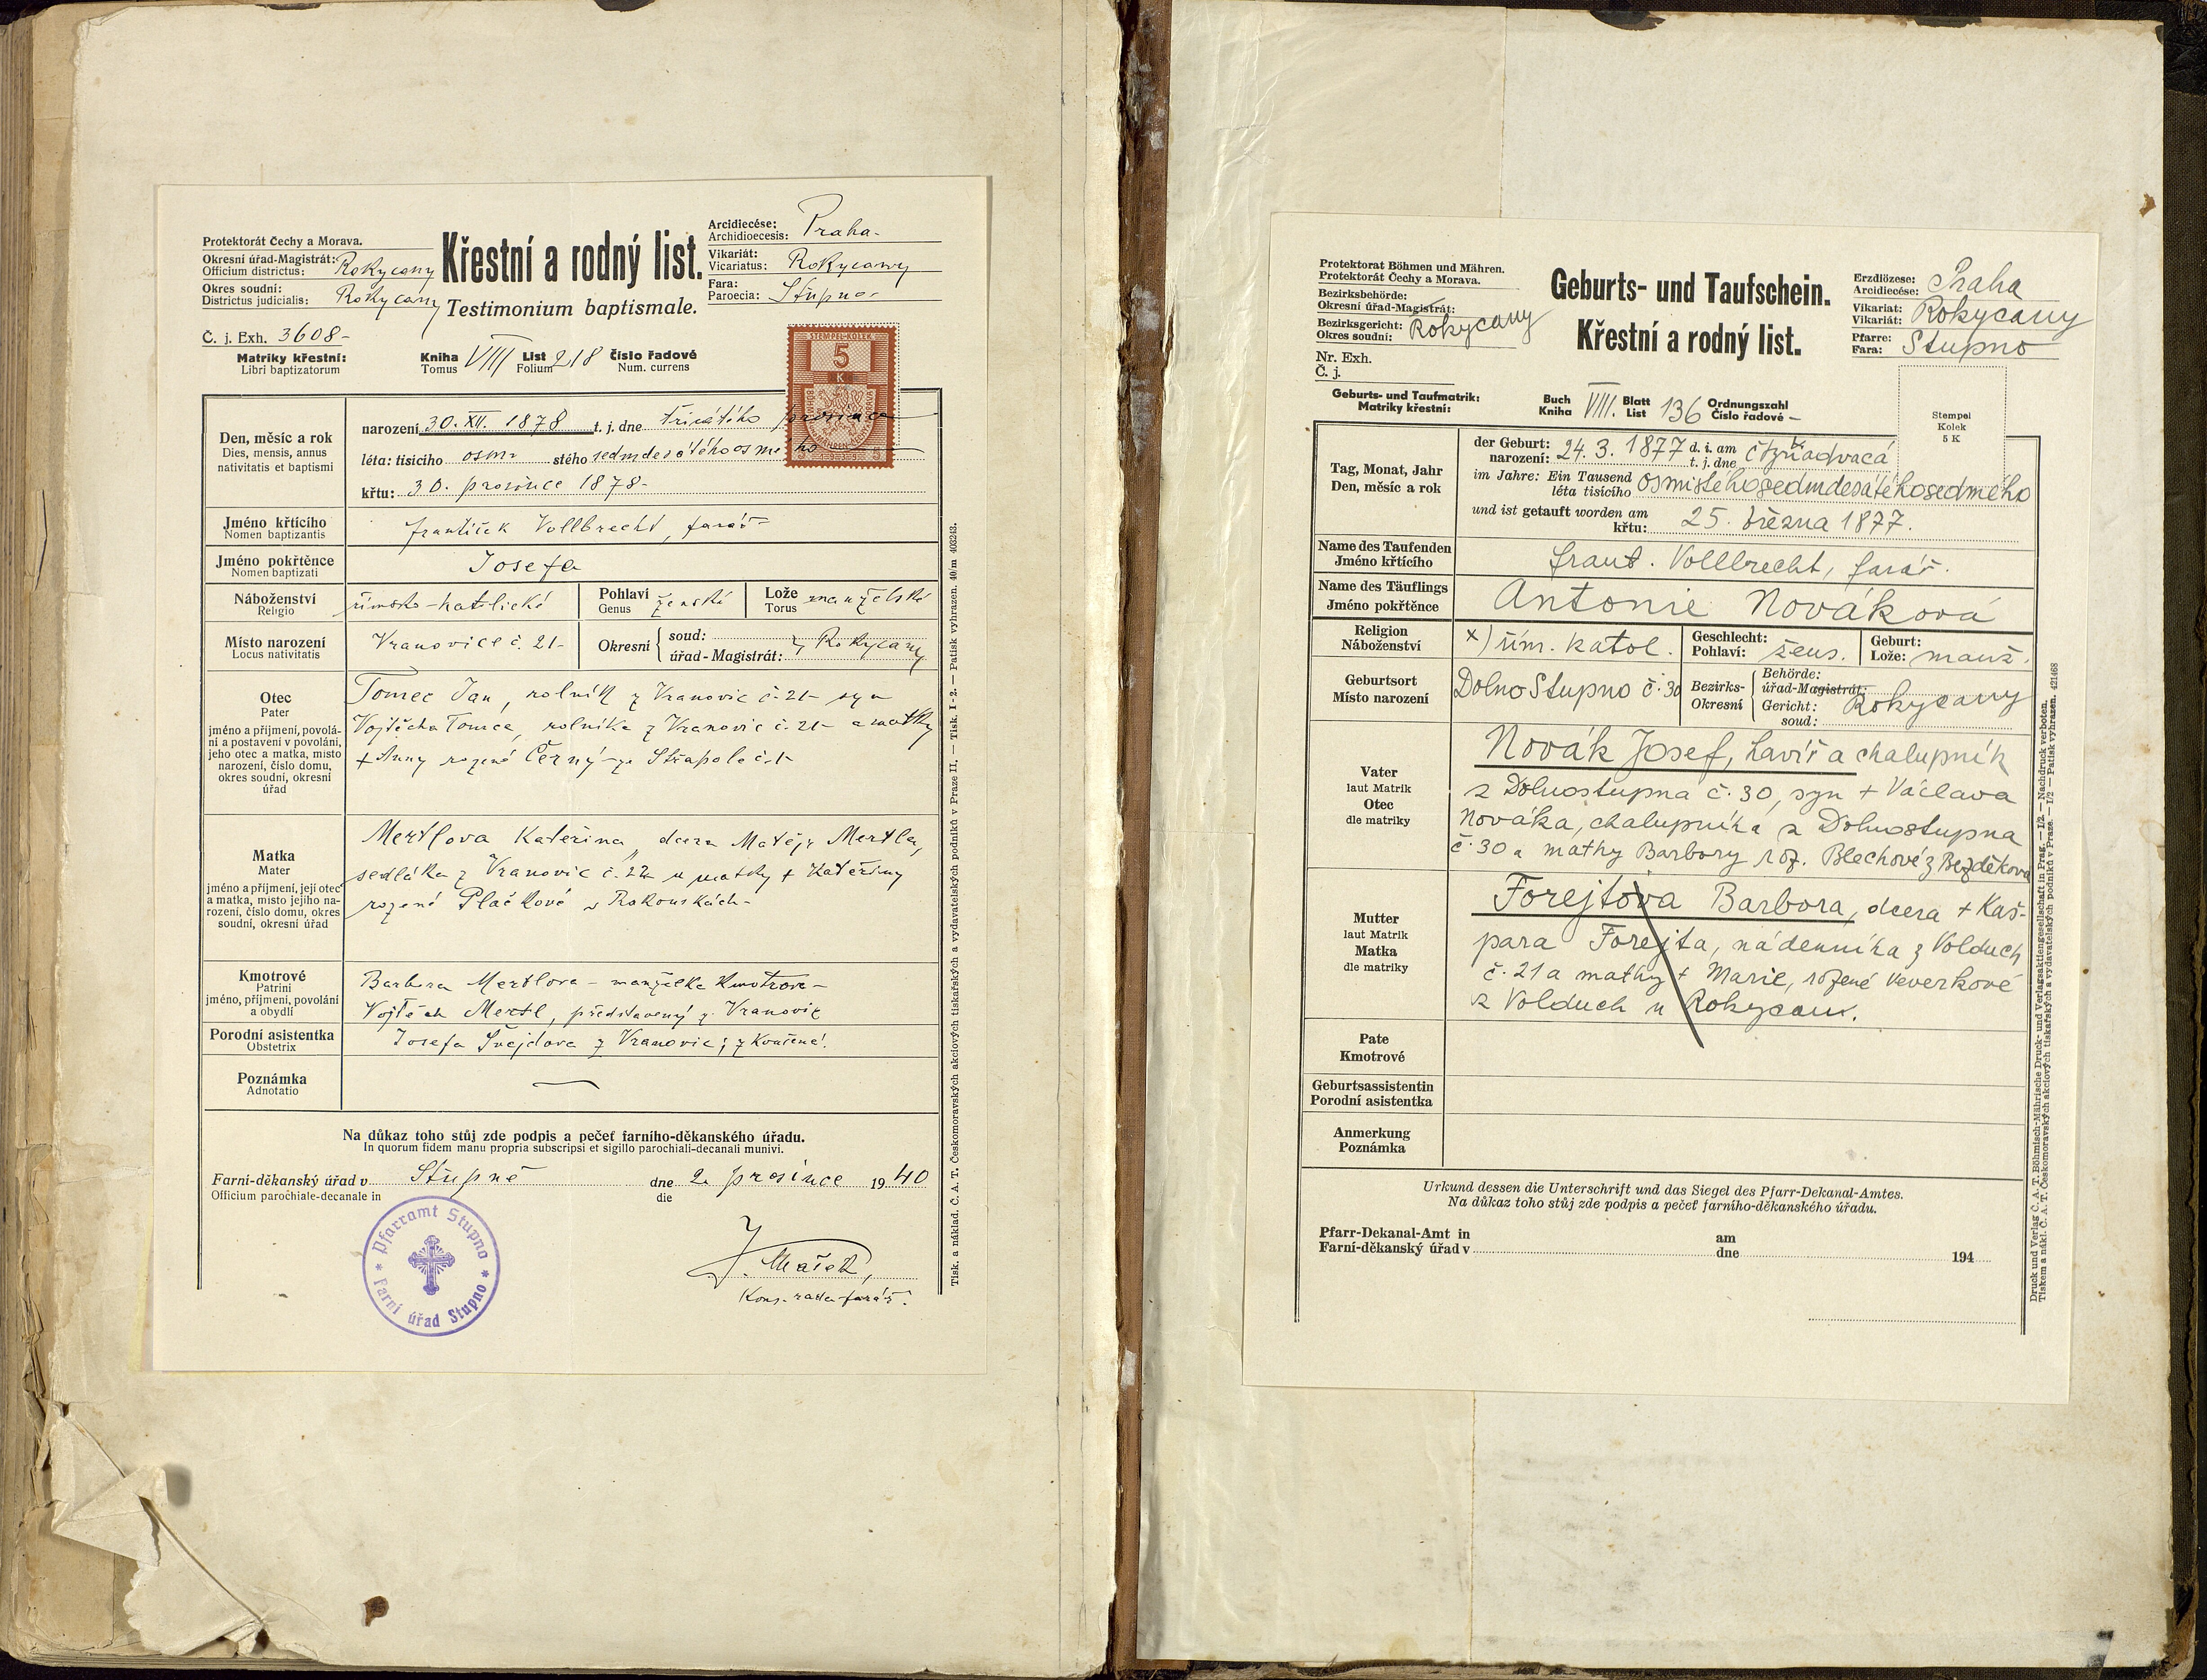 Protektorát Čechy a Morava.
Okresní úřad-Magistrát: Rokycany
Officium districtus:
Okres soudní: Rokycany
Districtus judicialis:
Křestní a rodný list.
Testimonium baptismale.
Arcidiecése: Praha-
Archidioecesis:
Vikariát: Rokycany
Vicariatus:
Fara: Stupno-
Paroecia:
Č. j. Exh. 3608-
Matriky křestní: Kniha VIII List 218 číslo řadové
Libri baptizatorum Tomus Folium Num. currens
STEMPEL-KOLEK
5
K
Den, měsíc a rok
Dies, mensis, annus
nativitatis et baptismi
narození 30. XII. 1878 t. j. dne třicátého prosince
léta: tisícího osmi stého sedmdesátého osmého
křtu: 30. prosince 1878-
Jméno křtícího František Vollbrecht, farář-
Nomen baptizantis
Jméno pokřtěnce Josefa
Nomen baptizati
Náboženství římsko-katolické Pohlaví ženské Lože manželské
Religio Genus Torus
Místo narození Vranovice č. 21- Okresní soud: úřad-Magistrát: Rokycany
Locus nativitatis
Otec
Pater
jméno a přijmení, povolá-
ní a postavení v povolání,
jeho otec a matka, místo
narození, číslo domu,
okres soudní, okresní
úřad
Tomec Jan, rolník z Vranovic č. 21- syn
Vojtěcha Tomce, rolníka z Vranovic č. 21- a matky
+ Anny rozené Černý ze Střapole č. 1-
Matka
Mater
jméno a přijmení, její otec
a matka, místo jejího na-
rození, číslo domu, okres
soudní, okresní úřad
Mertlova Kateřina, dcera Matěje Mertla,
sedláka z Vranovic č. 22 a matky + Kateřiny
rozené Plačkové
Kmotrové
Patrini
jméno, příjmení, povolání
a obydlí
Barbora Mertlova - manželka kmotrova-
Vojtěch Mertl, představený z Vranovic
Porodní asistentka Josefa Švejdova z Vranovic; zkoušená.
Obstetrix
Poznámka
Adnotatio
Na důkaz toho stůj zde podpis a pečeť farního-děkanského úřadu.
In quorum fidem manu propria subscripsi et sigillo parochiali-decanali munivi.
Farní-děkanský úřad v Stupně dne 2. prosince 1940
Officium parochiale-decanale in die
Pfarramt Stupno
Farní úřad Stupno
J. Mašek,
Kons. rada farář.
Tisk. a náklad. Č. A. T. Českomoravských akciových tiskařských a vydavatelských podniků v Praze II. — Tisk. I-2. — Patisk vyhrazen. 40/m 403243.
Protektorat Böhmen und Mähren.
Protektorát Čechy a Morava.
Bezirksbehörde:
Okresní úřad-Magistrát:
Bezirksgericht: Rokycany
Okres soudní:
Nr. Exh.
Č. j.
Geburts- und Taufschein.
Křestní a rodný list.
Erzdiözese: Praha
Arcidiecése:
Vikariat: Rokycany
Vikariát:
Pfarre: Stupno
Fara:
Geburts- und Taufmatrik: Buch VIII. Blatt 136 Ordnungszahl
Matriky křestní: Kniha List Číslo řadové -
Stempel
Kolek
5 K
Tag, Monat, Jahr
Den, měsíc a rok
der Geburt: 24. 3. 1877 d. i. am čtyřiadvacá
narození: t. j. dne
im Jahre: Ein Tausend osmistéhosedmdesátéhosedmého
léta tisícího
und ist getauft worden am
křtu: 25. března 1877.
Name des Taufenden frant. Vollbrecht, farář.
Jméno křtícího
Name des Täuflings Antonie Nováková
Jméno pokřtěnce
Religion x) řím. katol. Geschlecht: žens. Geburt: manž.
Náboženství Pohlaví: Lože:
Geburtsort Dolno Stupno č. 30 Bezirks- Behörde:
Místo narození Okresní úřad-Magistrát: Rokycany
Gericht:
soud:
Vater
laut Matrik
Otec
dle matriky
Novák Josef, havíř a chalupník
z Dolnostupna č. 30, syn + Václava
Nováka, chalupníka z Dolnostupna
č. 30 a matky Barbory roz. Blechové z Bezděkova
Mutter
laut Matrik
Matka
dle matriky
Forejtova Barbora, dcera + Kaš-
para Forejta, nádenníka z Volduch
č. 21 a matky + Marie, rozené Veverkové
z Volduch u Rokycan.
Pate
Kmotrové
Geburtsassistentin
Porodní asistentka
Anmerkung
Poznámka
Urkund dessen die Unterschrift und das Siegel des Pfarr-Dekanal-Amtes.
Na důkaz toho stůj zde podpis a pečeť farního-děkanského úřadu.
Pfarr-Dekanal-Amt in am
Farní-děkanský úřad v dne 194
Druck und Verlag Č. A. T. Böhmisch-Mährische Druck- und Verlagsaktiengesellschaft in Prag. — I/2 — Nachdruck verboten.
Tiskem a nákl. Č. A. T. Českomoravských akciových tiskařských a vydavatelských podniků v Praze. — I/2 — Patisk vyhrazen. 421468